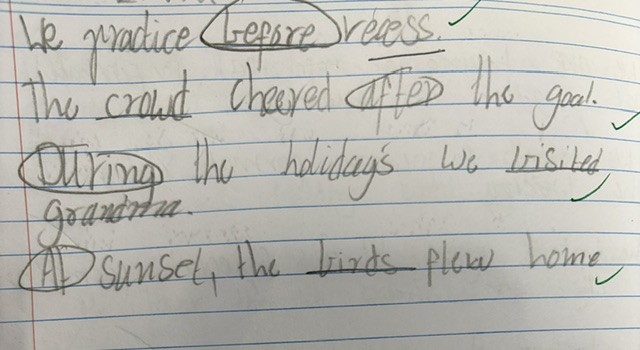 We practice before recess.
The crowd cheered after the goal.
During the holidays we visited
grandma.
At sunset, the birds flew home